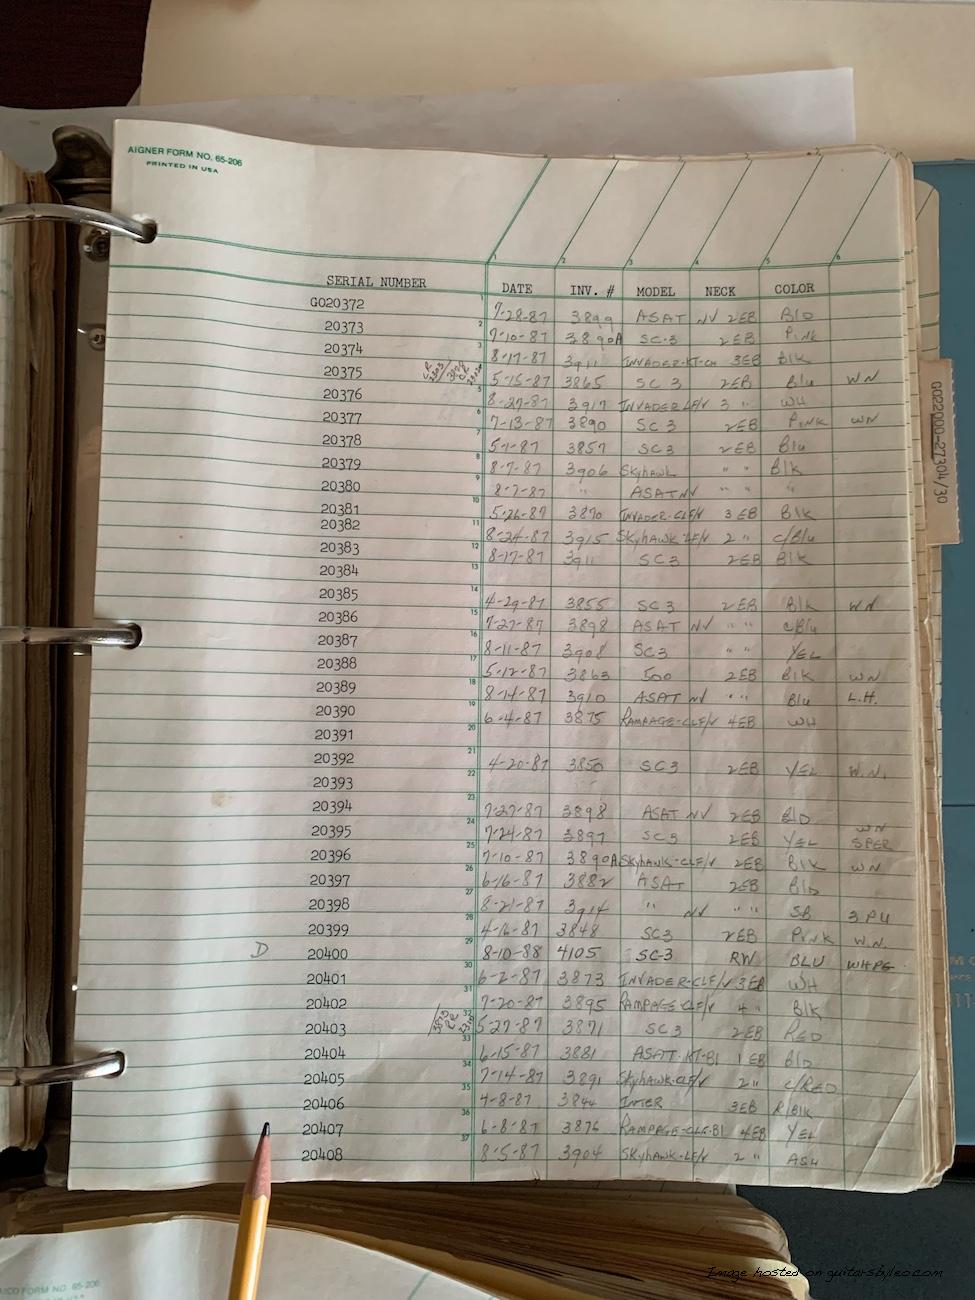 AIGNER FORM NO. 65-206
PRINTED IN USA
1 2 3 4 5 6
SERIAL NUMBER DATE INV. # MODEL NECK COLOR
G020372 7-28-87 3899 ASAT NV 2EB BLD
20373 7-10-87 3890A SC-3 2EB PINK
20374 8-17-87 3911 INVADER-KT-CH 3EB Blk
20375 5-15-87 3865 SC 3 2EB Blu WN
20376 8-27-87 3917 INVADER 3 " WH
20377 7-13-87 3890 SC 3 2EB PINK WN
20378 5-1-87 3857 SC 3 2EB Blu
20379 8-7-87 3906 SKYHAWK " " Blk
20380 8-7-87 " ASAT NV " " "
20381 5-26-87 3870 INVADER-CLF/V 3EB Blk
20382 8-24-87 3915 SKYHAWK LF/V 2 " C/Blu
20383 8-17-87 3911 SC 3 2EB Blk
20384
20385 4-29-87 3855 SC 3 2EB Blk WN
20386 7-27-87 3898 ASAT NV " " C/Blu
20387 8-11-87 3908 SC3 " " YEL
20388 5-12-87 3863 500 2EB Blk WN
20389 8-14-87 3910 ASAT NV " " Blu L.H.
20390 6-4-87 3875 RAMPAGE-CLF/V 4EB WH
20391
20392 4-20-87 3850 SC3 2EB YEL W.N.
20393
20394 7-27-87 3898 ASAT NV 2EB BLD
20395 7-24-87 3897 SC3 2EB YEL WN SPER
20396 7-10-87 3890A SKYHAWK-CLF/V 2EB Blk WN
20397 6-16-87 3882 ASAT 2EB Bld
20398 8-21-87 3914 " NV " " SB 3 PU
20399 4-16-87 3848 SC3 2EB PINK W.N.
D 20400 8-10-88 4105 SC-3 RW BLU WHPG
20401 6-2-87 3873 INVADER-CLF/V 3EB WH
20402 7-20-87 3895 RAMPAGE-CLF/V 4 " Blk
20403 5-27-87 3871 SC 3 2EB RED
20404 6-15-87 3881 ASAT-KT-Bl 1 EB Bld
20405 7-14-87 3891 SKYHAWK-CLF/V 2 " C/RED
20406 4-8-87 3844 INTER 3EB Blk
20407 6-8-87 3876 RAMPAGE-CLF-Bl 4EB YEL
20408 8-5-87 3904 SKYHAWK-LF/V 2 " ASH
G022000-27304/30
FORM NO. 65-206
Image hosted on guitarsbyleo.com